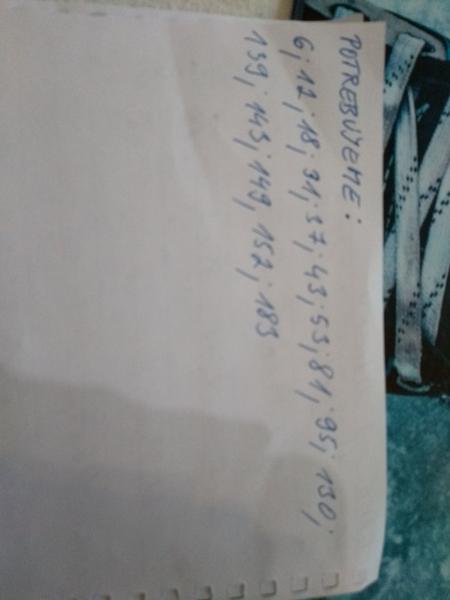 POTREBUJEME:
6; 12; 18; 31; 37; 43; 53; 81; 95; 130;
139; 143; 149; 152; 183